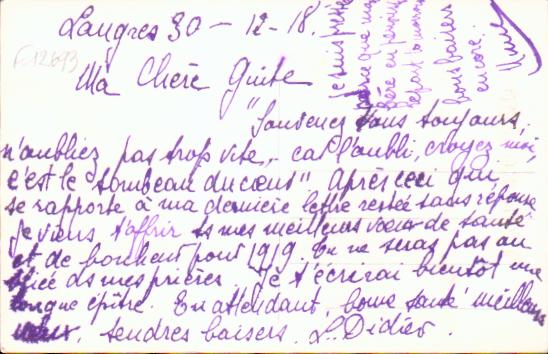 Langres 30 - 12 - 18.
Ma Chère Guite
"Souvenez vous toujours,
n'oubliez pas trop vite, car l'oubli, croyez moi,
c'est le tombeau du cœur" Après ceci qui
se rapporte à ma dernière lettre restée sans réponse
je viens t'offrir mes meilleurs vœux de santé
et de bonheur pour 1919. Tu ne seras pas
ds mes prières. Je t'écrirai bientôt une
longue épître. En attendant, bonne santé meilleurs
vœux, tendres baisers. L. Didier.
bons baisers
encore.
F12693